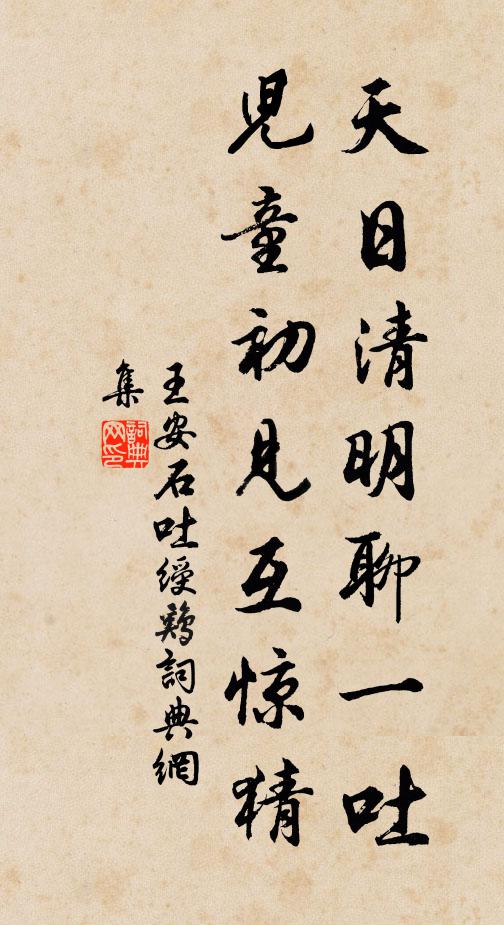 天日清明聊一吐
兒童初見互惊猜
王安石吐綬鷄詞典網
集
詞典
网印